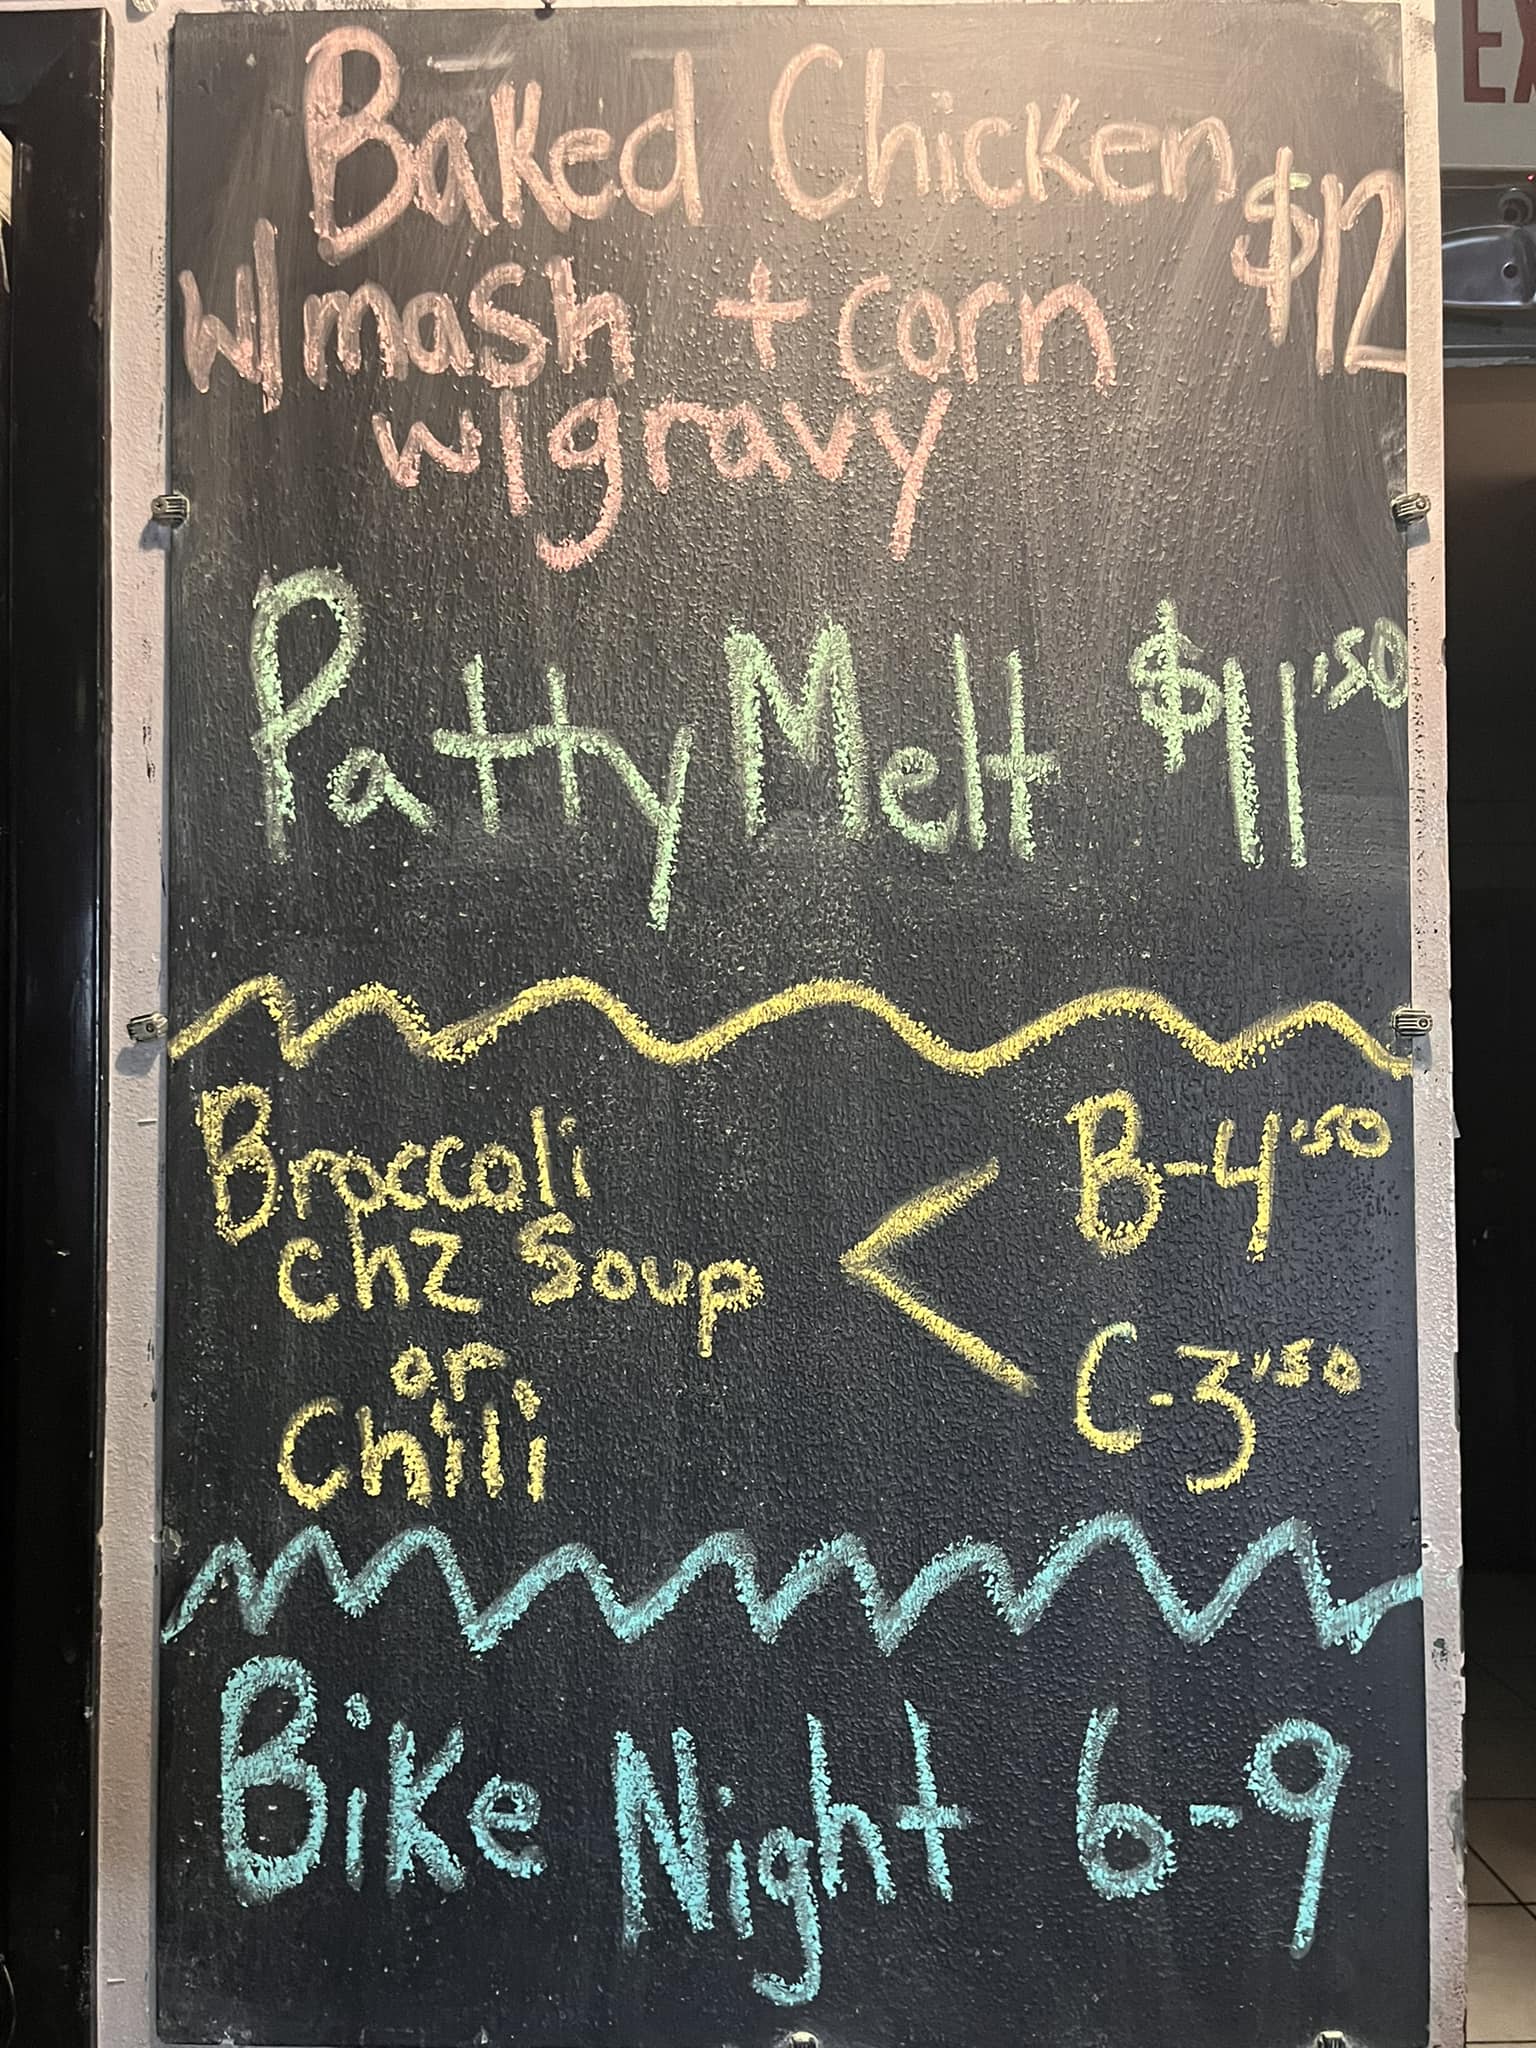 Baked Chicken $12
w/mash + corn
w/gravy
Patty Melt $11.50
Broccoli
chz Soup
or
Chili
B-4.50
C-3.50
Bike Night 6-9
EX